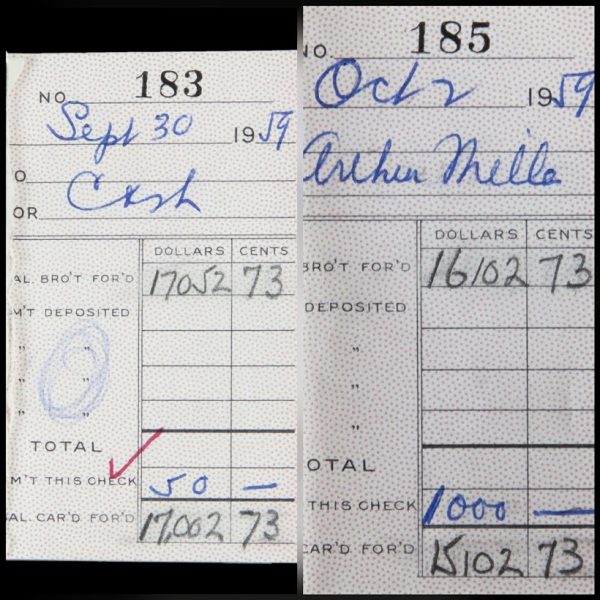 NO 183
Sept 30 1959
O Cash
OR
DOLLARS CENTS
AL. BRO'T FOR'D 17052 73
M'T DEPOSITED
"
" "
" "
TOTAL
M'T THIS CHECK 50 —
AL. CAR'D FOR'D 17,002 73
NO 185
Oct 2 1959
Arthur Miller
DOLLARS CENTS
BRO'T FOR'D 16102 73
DEPOSITED
"
"
"
OTAL
THIS CHECK 1000 —
CAR'D FOR'D 15102 73